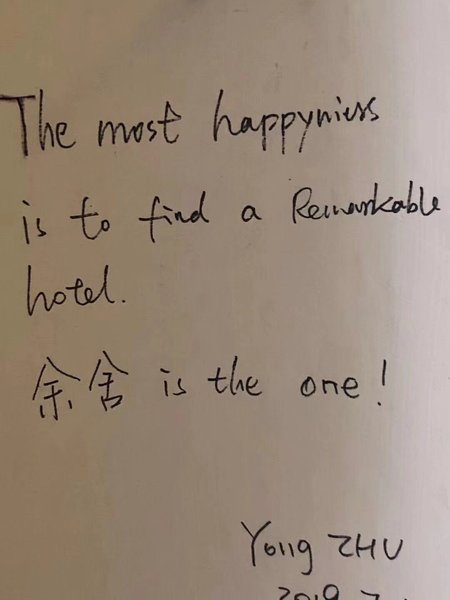 The most happyniess
is to find a Remarkable
hotel.
余舍 is the one!
Yong ZHU
2019.